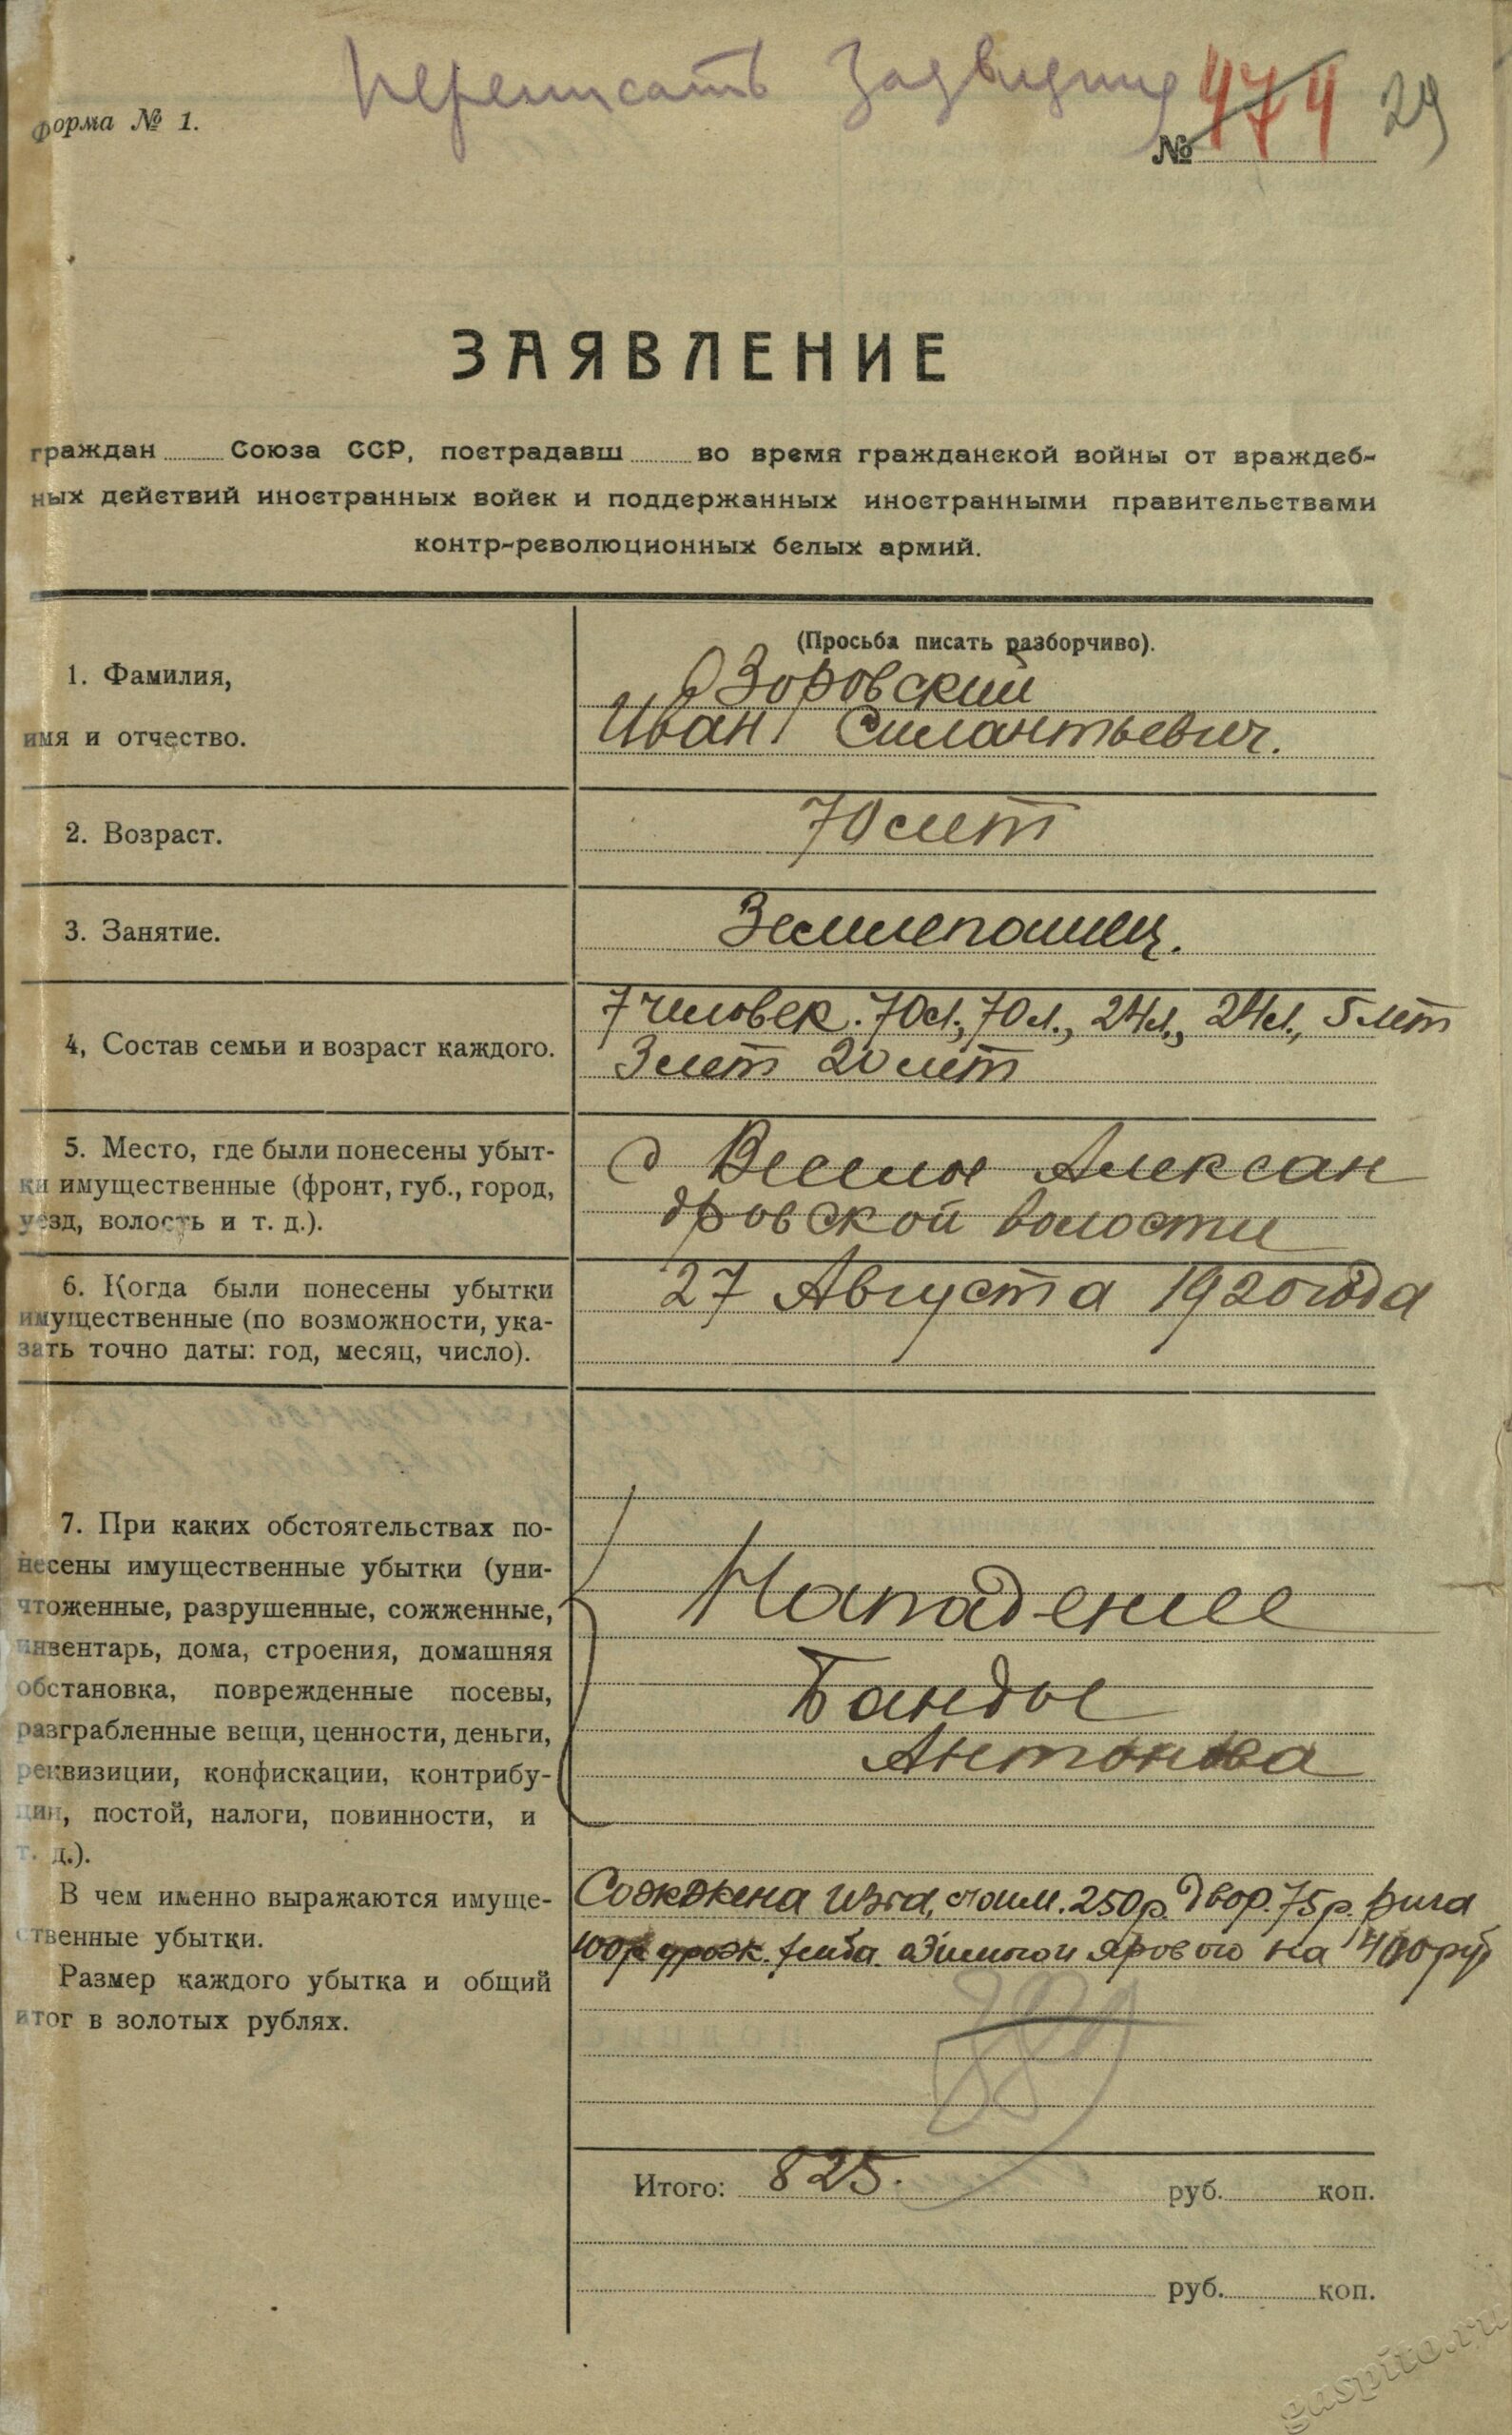 Переписать
форма № 1.
№ 474 29
ЗАЯВЛЕНИЕ
граждан Союза ССР, пострадавш во время гражданской войны от враждеб-
ных действий иностранных войск и поддержанных иностранными правительствами
контр-революционных белых армий.
(Просьба писать разборчиво).
1. Фамилия,
имя и отчество.
Озоровский
Иван Силантьевич.
2. Возраст.
70 лет
3. Занятие.
Землепашец.
4, Состав семьи и возраст каждого.
7 человек. 70л., 70л., 24л., 24л., 5 лет
3 лет 20 лет
5. Место, где были понесены убыт-
ки имущественные (фронт, губ., город,
уезд, волость и т. д.).
Алексан
дровской волости
6. Когда были понесены убытки
имущественные (по возможности, ука-
зать точно даты: год, месяц, число).
27 Августа 1920 года
7. При каких обстоятельствах по-
несены имущественные убытки (уни-
чтоженные, разрушенные, сожженные,
инвентарь, дома, строения, домашняя
обстановка, поврежденные посевы,
разграбленные вещи, ценности, деньги,
реквизиции, конфискации, контрибу-
ции, постой, налоги, повинности, и
т. д.).
Нападение
Банды
Антонова
В чем именно выражаются имуще-
ственные убытки.
Размер каждого убытка и общий
итог в золотых рублях.
Сожжена изба, стоим. 250р. двор. 75р. рига
100р хлеба ярового на 400 руб
Итого: 825. руб. коп.
руб. коп.
gaspito.ru